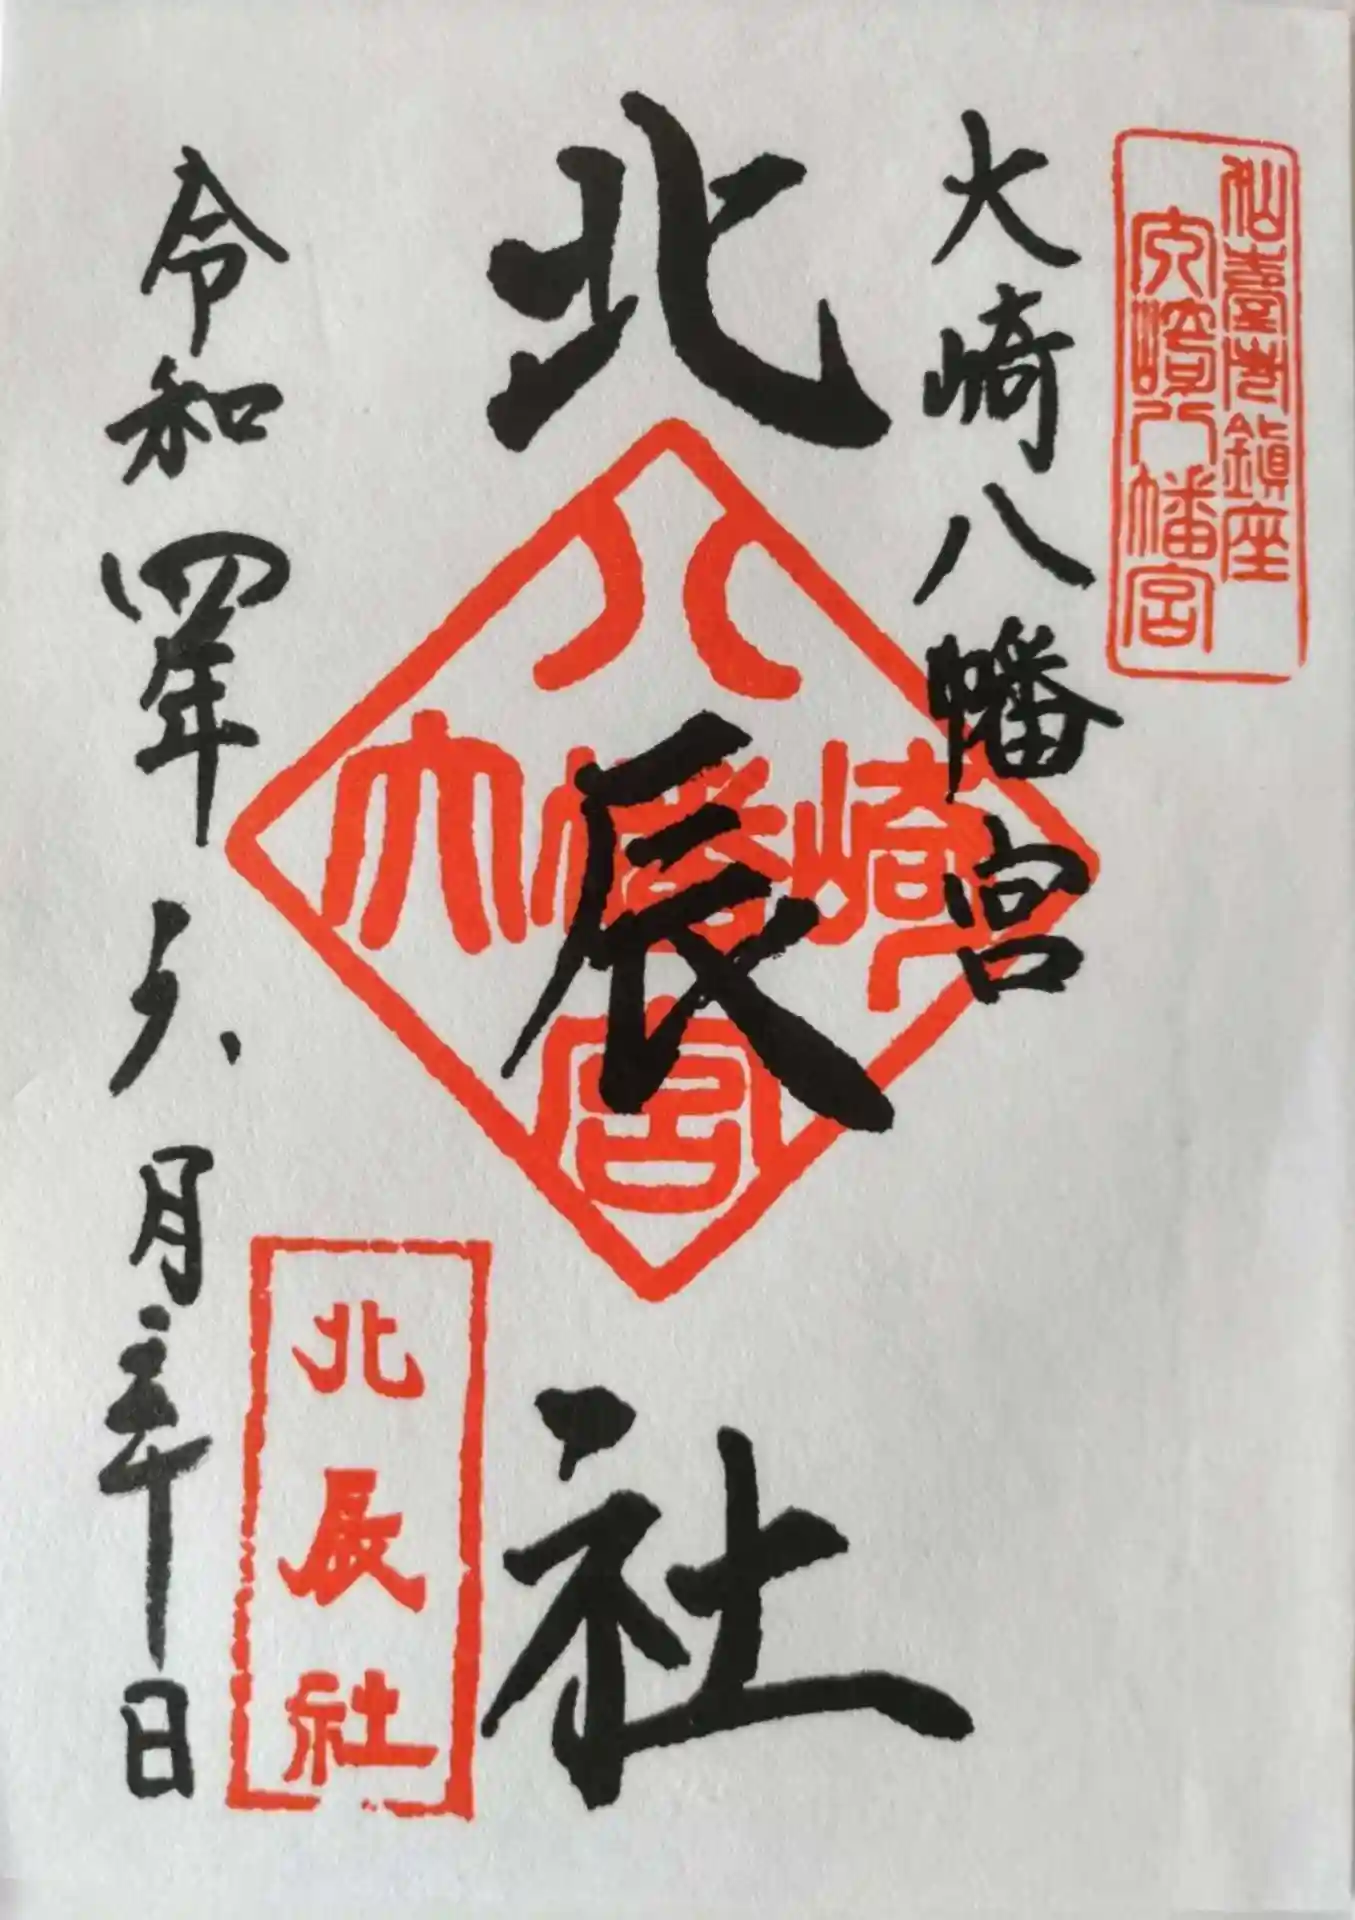 仙臺市鎮座
大崎八幡宮
大崎八幡宮
北辰社
大崎八幡宮
北辰社
令和四年六月三十日